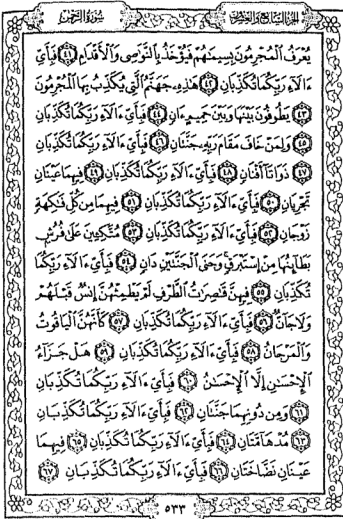 الجزء السابع والعشرون سورة الرحمن
يُعْرَفُ ٱلْمُجْرِمُونَ بِسِيمَٰهُمْ فَيُؤْخَذُ بِٱلنَّوَٰصِى وَٱلْأَقْدَامِ ٤١ فَبِأَىِّ
ءَالَآءِ رَبِّكُمَا تُكَذِّبَانِ ٤٢ هَٰذِهِۦ جَهَنَّمُ ٱلَّتِى يُكَذِّبُ بِهَا ٱلْمُجْرِمُونَ
٤٣ يَطُوفُونَ بَيْنَهَا وَبَيْنَ حَمِيمٍ ءَانٍ ٤٤ فَبِأَىِّ ءَالَآءِ رَبِّكُمَا تُكَذِّبَانِ
٤٥ وَلِمَنْ خَافَ مَقَامَ رَبِّهِۦ جَنَّتَانِ ٤٦ فَبِأَىِّ ءَالَآءِ رَبِّكُمَا تُكَذِّبَانِ
٤٧ ذَوَاتَآ أَفْنَانٍ ٤٨ فَبِأَىِّ ءَالَآءِ رَبِّكُمَا تُكَذِّبَانِ ٤٩ فِيهِمَا عَيْنَانِ
تَجْرِيَانِ ٥٠ فَبِأَىِّ ءَالَآءِ رَبِّكُمَا تُكَذِّبَانِ ٥١ فِيهِمَا مِن كُلِّ فَٰكِهَةٍ
زَوْجَانِ ٥٢ فَبِأَىِّ ءَالَآءِ رَبِّكُمَا تُكَذِّبَانِ ٥٣ مُتَّكِـِٔينَ عَلَىٰ فُرُشٍۭ
بَطَآئِنُهَا مِنْ إِسْتَبْرَقٍ وَجَنَى ٱلْجَنَّتَيْنِ دَانٍ ٥٤ فَبِأَىِّ ءَالَآءِ رَبِّكُمَا
تُكَذِّبَانِ ٥٥ فِيهِنَّ قَٰصِرَٰتُ ٱلطَّرْفِ لَمْ يَطْمِثْهُنَّ إِنسٌ قَبْلَهُمْ
وَلَا جَآنٌّ ٥٦ فَبِأَىِّ ءَالَآءِ رَبِّكُمَا تُكَذِّبَانِ ٥٧ كَأَنَّهُنَّ ٱلْيَاقُوتُ
وَٱلْمَرْجَانُ ٥٨ فَبِأَىِّ ءَالَآءِ رَبِّكُمَا تُكَذِّبَانِ ٥٩ هَلْ جَزَآءُ
ٱلْإِحْسَٰنِ إِلَّا ٱلْإِحْسَٰنُ ٦٠ فَبِأَىِّ ءَالَآءِ رَبِّكُمَا تُكَذِّبَانِ
٦١ وَمِن دُونِهِمَا جَنَّتَانِ ٦٢ فَبِأَىِّ ءَالَآءِ رَبِّكُمَا تُكَذِّبَانِ
٦٣ مُدْهَآمَّتَانِ ٦٤ فَبِأَىِّ ءَالَآءِ رَبِّكُمَا تُكَذِّبَانِ ٦٥ فِيهِمَا
عَيْنَانِ نَضَّاخَتَانِ ٦٦ فَبِأَىِّ ءَالَآءِ رَبِّكُمَا تُكَذِّبَانِ ٦٧
٥٣٣